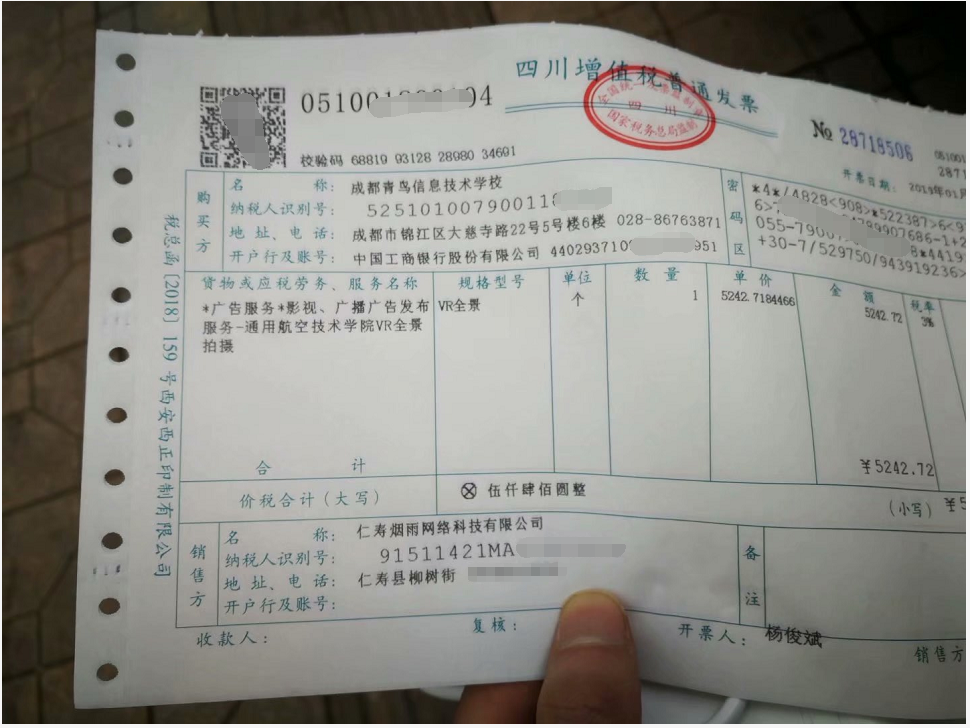 四川增值税普通发票
全国统一发票监制章
四川
国家税务总局监制
051001
04
№ 28718506
051001
2871
校验码 68819 93128 28980 34691
开票日期: 2019年01月
购买方
名 称: 成都青鸟信息技术学校
纳税人识别号: 52510100790011
地 址、电 话: 成都市锦江区大慈寺路22号5号楼6楼 028-86763871
开户行及账号: 中国工商银行股份有限公司 4402937109 951
密码区
*4*/4828<908>*522387>6<9
6>
789907686-1+2
055-7900 8*4419
+30-7/529750/943919236>
货物或应税劳务、服务名称 规格型号 单位 数 量 单 价 金 额 税率
*广告服务*影视、广播广告发布 VR全景 个 1 5242.7184466 5242.72 3%
服务-通用航空技术学院VR全景
拍摄
合 计 ¥5242.72
价税合计(大写) ⊗ 伍仟肆佰圆整 (小写) ¥5
销售方
名 称: 仁寿烟雨网络科技有限公司
纳税人识别号: 91511421MA
地 址、电 话: 仁寿县柳树街
开户行及账号:
备注
收款人: 复核: 开票人: 杨俊斌 销售方
税总函[2018] 159 号西安西正印制有限公司